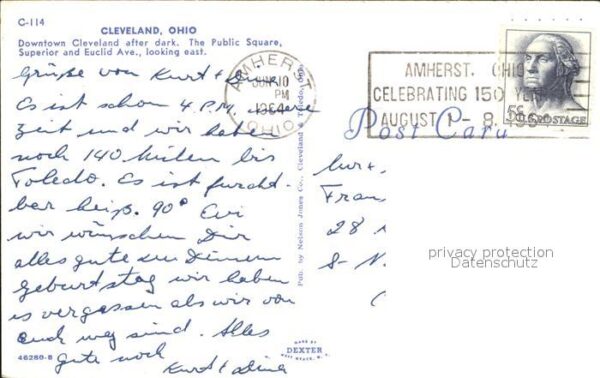 C-114
CLEVELAND, OHIO
Downtown Cleveland after dark. The Public Square,
Superior and Euclid Ave., looking east.
Grüße von Kurt +
Es ist schon 4 P.M.
Zeit und wir haben
noch 140 Meilen bis
Toledo. Es ist furcht-
bar heiß. 90° Evi
wir wünschen Dir
alles gute zu Deinem
Geburtstag wir haben
es vergessen als wir von
euch weg sind. Alles
gute noch
Kurt +
46280-B
Pub. by Nelson Jones Co., Cleveland & Toledo, Ohio
MADE BY
DEXTER
WEST NYACK, N.Y.
AMHERST
JUN 10
PM
1964
OHIO
AMHERST, OHIO
CELEBRATING 150 YEARS
AUGUST 1 - 8, 1964
5¢ U.S. POSTAGE
Post Card
Fran
28
S-N.
privacy protection
Datenschutz